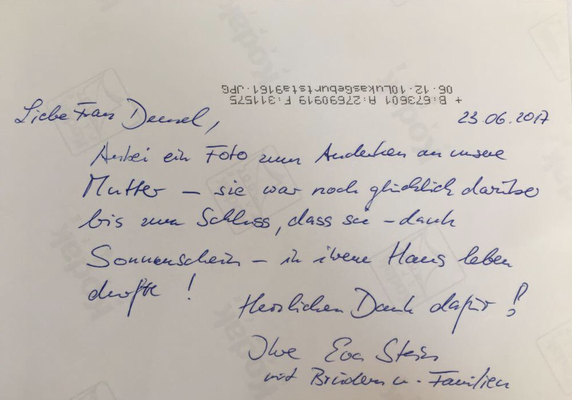 + B:673601 A:27690919 F:311575
06.12.10LukasGeburtsta9161.JPG
Liebe Frau Deusel,
23.06.2017
Anbei ein Foto zum Andenken an unsere
Mutter – sie war noch glücklich darüber
bis zum Schluss, dass sie – dank
Sonnenschein – in ihrem Haus leben
durfte!
Herzlichen Dank dafür!
Ihre Eva Stein
mit Brüdern u. Familien
Kodak